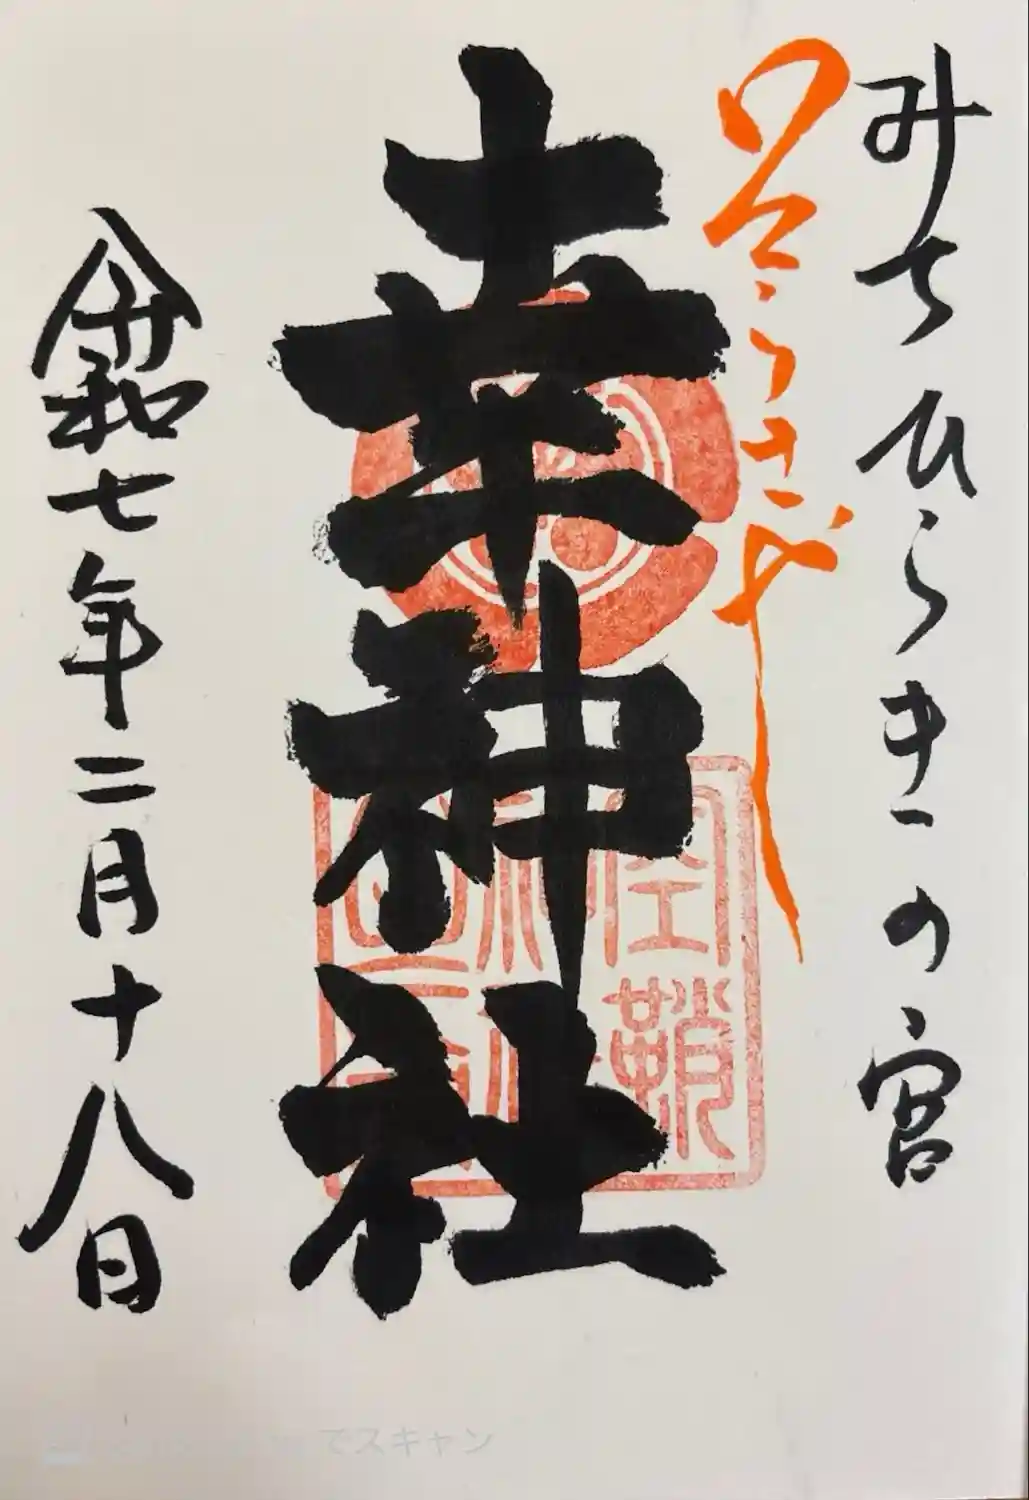 みちひらきの宮
幸神社
空鞘
令和七年二月十八日
でスキャン